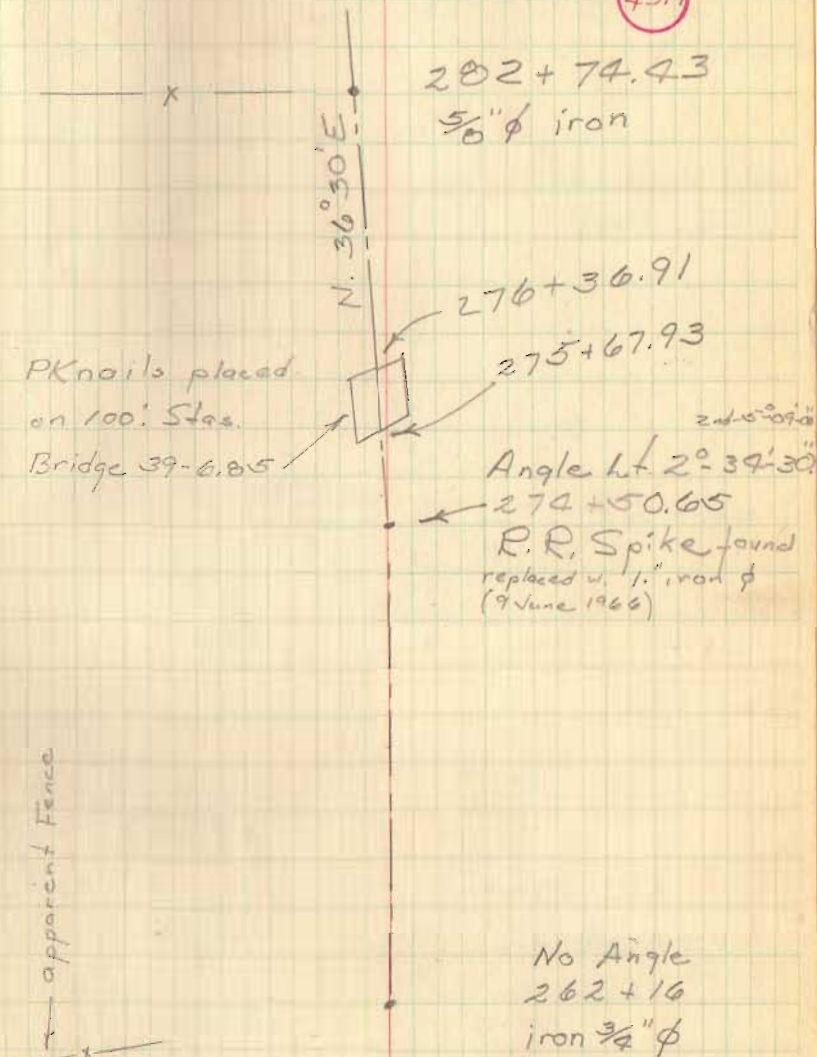 282 + 74.43
5/8" ϕ iron
N. 36°30'E
276+36.91
275+67.93
PK nails placed
on 100' Stas.
Bridge 39-6.85
2nd-5°-09'-0"
Angle Lt. 2°-34'-30"
274+50.65
R.R. Spike found
replaced w. 1" iron ϕ
(9 June 1966)
apparent Fence
No Angle
262 + 16
iron 3/4" ϕ